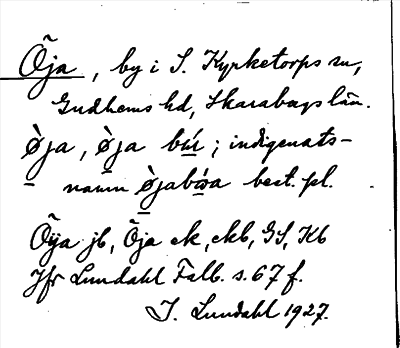 Õja, by i S. Kyrketorps sn,
Gudhems hd, Skarabogs län.
Ø̀ja, Ø̀ja búr; indigenats-
namn Ø̀jabúsa best. pl.
Õÿa jb, Õja ek, ekb, GS, Kb
Jfr Lundahl Falb. s. 67 f.
I. Lundahl 1927.